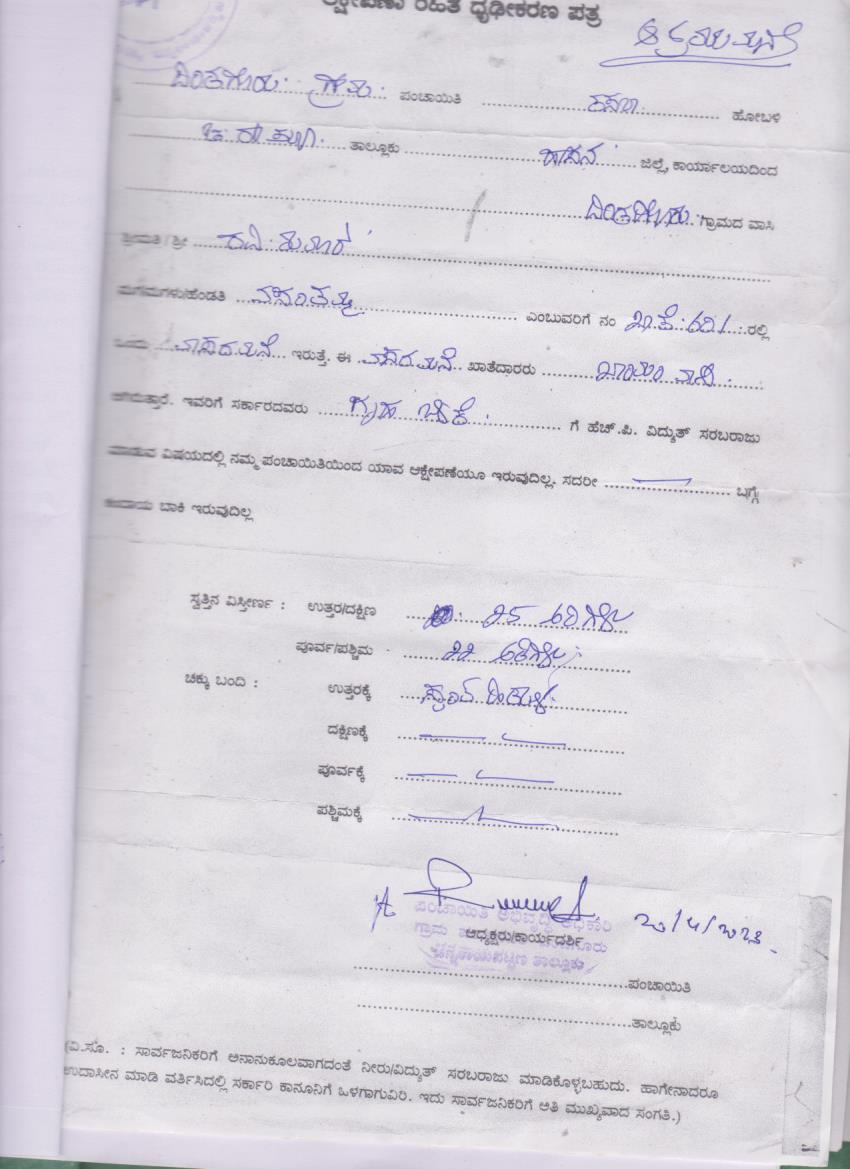 ಕ್ಷೇಪಣಾ ರಹಿತ ಧೃಢೀಕರಣ ಪತ್ರ
ದಿಂಡಗೂರು. ಗ್ರಾಮ. ಪಂಚಾಯಿತಿ ಕಸಬಾ. ಹೋಬಳಿ
ತಾಲ್ಲೂಕು ಹಾಸನ ಜಿಲ್ಲೆ, ಕಾರ್ಯಾಲಯದಿಂದ
ದಿಂಡಗೂರು. ಗ್ರಾಮದ ವಾಸಿ
ಶ್ರೀಮತಿ / ಶ್ರೀ ರವಿ ಕುಮಾರ್
ಮಗ/ಮಗಳು/ಹೆಂಡತಿ ವಸಂತಮ್ಮ ಎಂಬುವರಿಗೆ ನಂ ರಲ್ಲಿ
ಒಂದು ವಾಸದ ಮನೆ ಇರುತ್ತೆ. ಈ ವಾಸದ ಮನೆ ಖಾತೆದಾರರು
ಆಗಿರುತ್ತಾರೆ. ಇವರಿಗೆ ಸರ್ಕಾರದವರು ಗೃಹ ಬಳಕೆ. ಗೆ ಹೆಚ್.ಪಿ. ವಿದ್ಯುತ್ ಸರಬರಾಜು
ಮಾಡುವ ವಿಷಯದಲ್ಲಿ ನಮ್ಮ ಪಂಚಾಯಿತಿಯಿಂದ ಯಾವ ಆಕ್ಷೇಪಣೆಯೂ ಇರುವುದಿಲ್ಲ. ಸದರೀ ಬಗ್ಗೆ
ಕಂದಾಯ ಬಾಕಿ ಇರುವುದಿಲ್ಲ
ಸ್ವತ್ತಿನ ವಿಸ್ತೀರ್ಣ : ಉತ್ತರ/ದಕ್ಷಿಣ 25 ಅಡಿಗಳು
ಪೂರ್ವ/ಪಶ್ಚಿಮ 22 ಅಡಿಗಳು
ಚಕ್ಕು ಬಂದಿ : ಉತ್ತರಕ್ಕೆ
ದಕ್ಷಿಣಕ್ಕೆ
ಪೂರ್ವಕ್ಕೆ
ಪಶ್ಚಿಮಕ್ಕೆ
ಪಂಚಾಯಿತಿ ಅಭಿವೃದ್ಧಿ ಅಧಿಕಾರಿ
ಅಧ್ಯಕ್ಷರು/ಕಾರ್ಯದರ್ಶಿ
ಚನ್ನರಾಯಪಟ್ಟಣ ತಾಲ್ಲೂಕು
ಪಂಚಾಯಿತಿ
ತಾಲ್ಲೂಕು
(ವಿ.ಸೂ. : ಸಾರ್ವಜನಿಕರಿಗೆ ಅನಾನುಕೂಲವಾಗದಂತೆ ನೀರು/ವಿದ್ಯುತ್ ಸರಬರಾಜು ಮಾಡಿಕೊಳ್ಳಬಹುದು. ಹಾಗೇನಾದರೂ
ಉದಾಸೀನ ಮಾಡಿ ವರ್ತಿಸಿದಲ್ಲಿ ಸರ್ಕಾರಿ ಕಾನೂನಿಗೆ ಒಳಗಾಗುವಿರಿ. ಇದು ಸಾರ್ವಜನಿಕರಿಗೆ ಅತಿ ಮುಖ್ಯವಾದ ಸಂಗತಿ.)